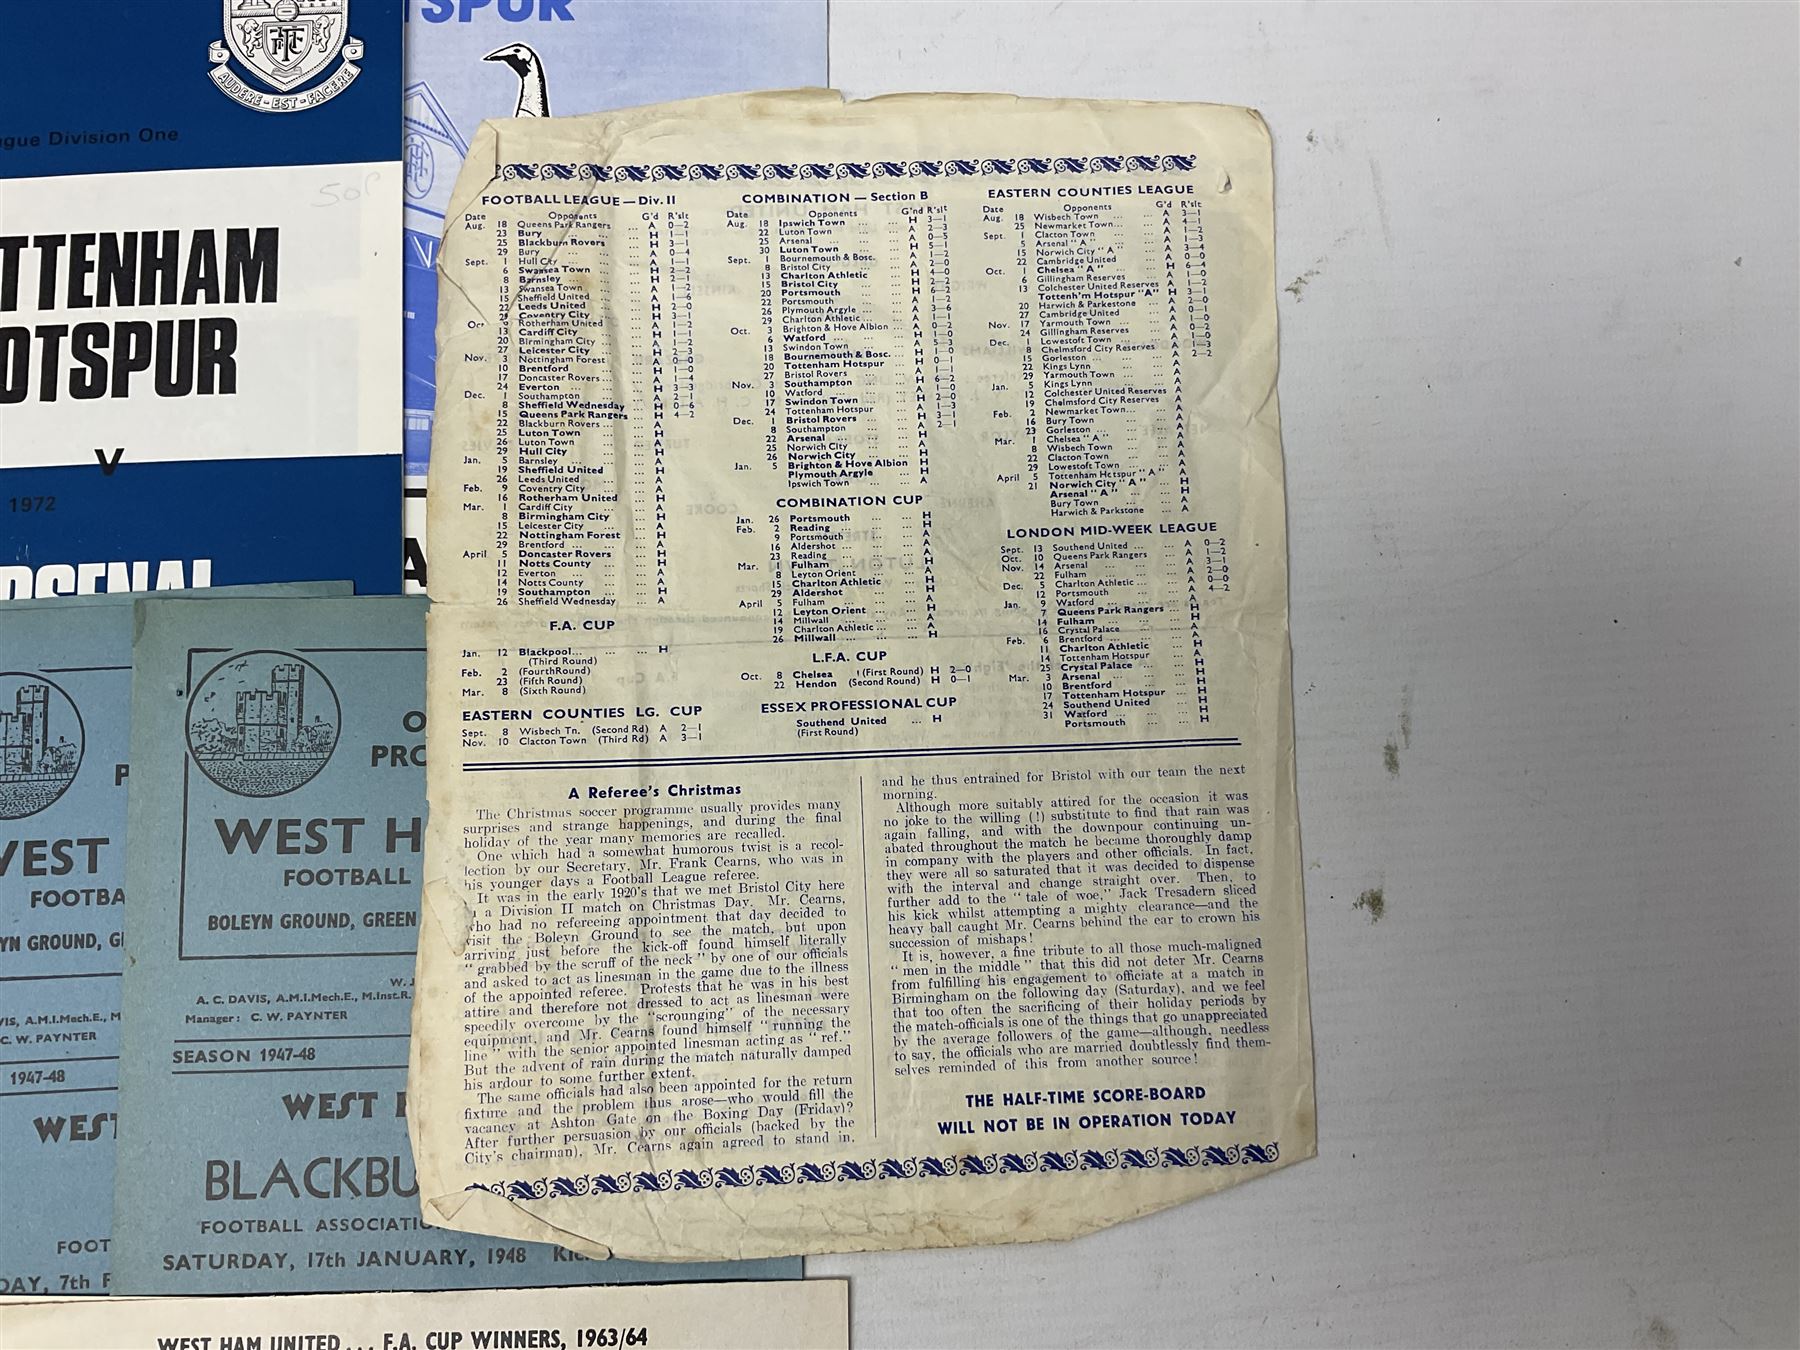 AUDERE - EST - FACERE
gue Division One
50P
TTENHAM
OTSPUR
V
1972
RSENAL
TSPUR
FOOTBALL LEAGUE — Div. II
Date Opponents G'd R'slt
Aug. 18 Queens Park Rangers ... A 0—2
23 Bury ... ... ... H 1—1
25 Blackburn Rovers ... H 3—1
29 Bury ... ... ... A 0—4
Sept. 1 Hull City ... ... A 1—1
6 Swansea Town ... ... H 2—2
8 Barnsley ... ... ... H 2—1
13 Swansea Town ... ... A 1—2
15 Sheffield United ... ... A 1—6
22 Leeds United ... ... H 2—0
Coventry City ... ... H 3—1
Oct. 6 Rotherham United ... A 1—2
13 Cardiff City ... ... H 1—1
20 Birmingham City ... A 1—2
27 Leicester City ... ... H 2—3
Nov. 3 Nottingham Forest ... A 0—0
10 Brentford ... ... H 1—0
17 Doncaster Rovers ... ... A 1—4
24 Everton ... ... ... H 3—3
Dec. 1 Southampton ... ... A 2—1
8 Sheffield Wednesday ... H 0—6
15 Queens Park Rangers ... H 4—2
22 Blackburn Rovers ... ... A
25 Luton Town ... ... H
26 Luton Town ... ... A
29 Hull City ... ... H
Jan. 5 Barnsley ... ... ... A
19 Sheffield United ... H
26 Leeds United ... ... A
Feb. 9 Coventry City ... ... A
16 Rotherham United ... H
Mar. 1 Cardiff City ... ... A
8 Birmingham City ... H
15 Leicester City ... ... A
22 Nottingham Forest ... H
29 Brentford ... ... ... A
April 5 Doncaster Rovers ... H
11 Notts County ... ... H
12 Everton ... ... ... A
14 Notts County ... ... A
19 Southampton ... ... H
26 Sheffield Wednesday ... A
F.A. CUP
Jan. 12 Blackpool ... ... ... H
(Third Round)
Feb. 2 (Fourth Round)
23 (Fifth Round)
Mar. 8 (Sixth Round)
EASTERN COUNTIES LG. CUP
Sept. 8 Wisbech Tn. (Second Rd) A 2—1
Nov. 10 Clacton Town (Third Rd) A 3—1
COMBINATION — Section B
Date Opponents G'nd R'slt
Aug. 18 Ipswich Town ... ... H 3—1
22 Luton Town ... ... A 2—3
25 Arsenal ... ... ... A 0—5
30 Luton Town ... ... H 5—1
Sept. 1 Bournemouth & Bosc. ... A 1—2
8 Bristol City ... ... A 2—0
13 Charlton Athletic ... H 4—0
15 Bristol City ... ... H 2—2
20 Portsmouth ... ... H 6—2
22 Portsmouth ... ... A 1—2
26 Plymouth Argyle ... ... A 3—6
29 Charlton Athletic ... ... A 1—1
Oct. 3 Brighton & Hove Albion ... A 0—2
6 Watford ... ... ... H 1—0
13 Swindon Town ... ... A 5—3
18 Bournemouth & Bosc. ... H 1—0
20 Tottenham Hotspur ... H 0—1
27 Bristol Rovers ... ... A 1—1
Nov. 3 Southampton ... ... H 6—2
10 Watford ... ... ... A 1—0
17 Swindon Town ... ... H 2—0
24 Tottenham Hotspur ... A 1—3
Dec. 1 Bristol Rovers ... ... H 3—1
8 Southampton ... ... A 2—1
22 Arsenal ... ... ... H
25 Norwich City ... ... A
26 Norwich City ... ... H
Jan. 5 Brighton & Hove Albion H
Plymouth Argyle ... H
Ipswich Town ... ... A
COMBINATION CUP
Jan. 26 Portsmouth ... ... H
Feb. 2 Reading ... ... ... H
9 Portsmouth ... ... A
16 Aldershot ... ... ... A
23 Reading ... ... ... A
Mar. 1 Fulham ... ... ... H
8 Leyton Orient ... ... A
15 Charlton Athletic ... H
29 Aldershot ... ... ... H
April 5 Fulham ... ... ... A
12 Leyton Orient ... ... H
14 Millwall ... ... ... A
19 Charlton Athletic ... ... A
26 Millwall ... ... ... H
L.F.A. CUP
Oct. 8 Chelsea (First Round) H 2—0
22 Hendon (Second Round) H 0—1
ESSEX PROFESSIONAL CUP
Southend United ... H
(First Round)
EASTERN COUNTIES LEAGUE
Date Opponents G'd R'slt
Aug. 18 Wisbech Town ... ... A 3—1
25 Newmarket Town ... ... A 4—1
Sept. 1 Clacton Town ... ... A 1—2
5 Arsenal "A" ... ... A 1—3
15 Norwich City "A" ... A 3—4
22 Cambridge United ... A 0—0
Oct. 1 Chelsea "A" ... ... H 6—4
6 Gillingham Reserves ... A 1—0
13 Colchester United Reserves A 1—2
Tottenh'm Hotspur "A" H 3—1
20 Harwich & Parkestone ... A 2—0
27 Cambridge United ... A 0—1
Nov. 17 Yarmouth Town ... ... A 1—0
24 Gillingham Reserves ... A 0—2
Dec. 1 Lowestoft Town ... ... A 1—0
8 Chelmsford City Reserves A 1—3
15 Gorleston ... ... ... A 2—2
22 Kings Lynn ... ... A
29 Yarmouth Town ... ... A
Jan. 5 Kings Lynn ... ... A
12 Colchester United Reserves A
19 Chelmsford City Reserves A
Feb. 2 Newmarket Town ... ... A
16 Bury Town ... ... A
23 Gorleston ... ... ... A
Mar. 1 Chelsea "A" ... ... A
8 Wisbech Town ... ... A
22 Clacton Town ... ... A
29 Lowestoft Town ... ... A
April 5 Tottenham Hotspur "A" A
21 Norwich City "A" ... H
Arsenal "A" ... ... H
Bury Town ... ... A
Harwich & Parkstone ... A
LONDON MID-WEEK LEAGUE
Sept. 13 Southend United ... ... A 0—2
Oct. 10 Queens Park Rangers ... A 1—2
Nov. 14 Arsenal ... ... ... A 3—1
22 Fulham ... ... ... A 2—0
Dec. 5 Charlton Athletic ... ... A 0—0
12 Portsmouth ... ... A 4—2
Jan. 9 Watford ... ... ... A
7 Queens Park Rangers ... H
14 Fulham ... ... ... H
16 Crystal Palace ... ... A
Feb. 6 Brentford ... ... ... A
11 Charlton Athletic ... H
14 Tottenham Hotspur ... A
25 Crystal Palace ... ... H
Mar. 3 Arsenal ... ... ... H
10 Brentford ... ... H
17 Tottenham Hotspur ... H
24 Southend United ... H
31 Watford ... ... ... H
Portsmouth ... ... H
A Referee's Christmas
The Christmas soccer programme usually provides many
surprises and strange happenings, and during the final
holiday of the year many memories are recalled.
One which had a somewhat humorous twist is a recol-
lection by our Secretary, Mr. Frank Cearns, who was in
his younger days a Football League referee.
It was in the early 1920's that we met Bristol City here
a Division II match on Christmas Day. Mr. Cearns,
who had no refereeing appointment that day decided to
visit the Boleyn Ground to see the match, but upon
arriving just before the kick-off found himself literally
"grabbed by the scruff of the neck" by one of our officials
and asked to act as linesman in the game due to the illness
of the appointed referee. Protests that he was in his best
attire and therefore not dressed to act as linesman were
speedily overcome by the "scrounging" of the necessary
equipment, and Mr. Cearns found himself "running the
line" with the senior appointed linesman acting as "ref."
But the advent of rain during the match naturally damped
his ardour to some further extent.
The same officials had also been appointed for the return
fixture and the problem thus arose—who would fill the
vacancy at Ashton Gate on the Boxing Day (Friday)?
After further persuasion by our officials (backed by the
City's chairman), Mr. Cearns again agreed to stand in,
and he thus entrained for Bristol with our team the next
morning.
Although more suitably attired for the occasion it was
no joke to the willing (!) substitute to find that rain was
again falling, and with the downpour continuing un-
abated throughout the match he became thoroughly damp
in company with the players and other officials. In fact,
they were all so saturated that it was decided to dispense
with the interval and change straight over. Then, to
further add to the "tale of woe," Jack Tresadern sliced
his kick whilst attempting a mighty clearance—and the
heavy ball caught Mr. Cearns behind the ear to crown his
succession of mishaps!
It is, however, a fine tribute to all those much-maligned
"men in the middle" that this did not deter Mr. Cearns
from fulfilling his engagement to officiate at a match in
Birmingham on the following day (Saturday), and we feel
that too often the sacrificing of their holiday periods by
the match-officials is one of the things that go unappreciated
by the average followers of the game—although, needless
to say, the officials who are married doubtlessly find them-
selves reminded of this from another source!
THE HALF-TIME SCORE-BOARD
WILL NOT BE IN OPERATION TODAY
O
PRO
WEST H
FOOTBALL
BOLEYN GROUND, GREEN
W. J
A. C. DAVIS, A.M.I.Mech.E., M.Inst.R.
Manager: C. W. PAYNTER
SEASON 1947-48
WEST
BLACKBU
FOOTBALL ASSOCIATIO
SATURDAY, 17th JANUARY, 1948 Kic
P
WEST
FOOTBA
YN GROUND, G
VIS, A.M.I.Mech.E., M
C. W. PAYNTER
1947-48
WEST
FOOT
DAY, 7th F
WEST HAM UNITED . . . F.A. CUP WINNERS, 1963/64